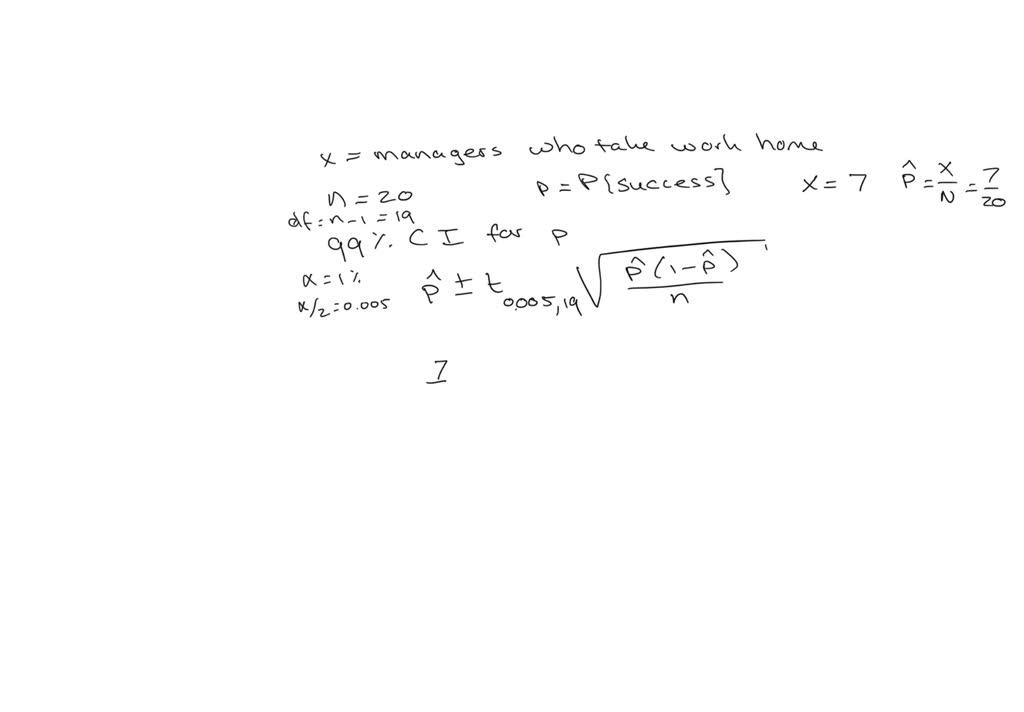 x = managers who take work home
n = 20 p = P{success} x = 7 p̂ = x/N = 7/20
df = n - 1 = 19
99% CI for p
α = 1%
α/2 = 0.005 p̂ ± t0.005,19 √(p̂(1-p̂)/n)
7